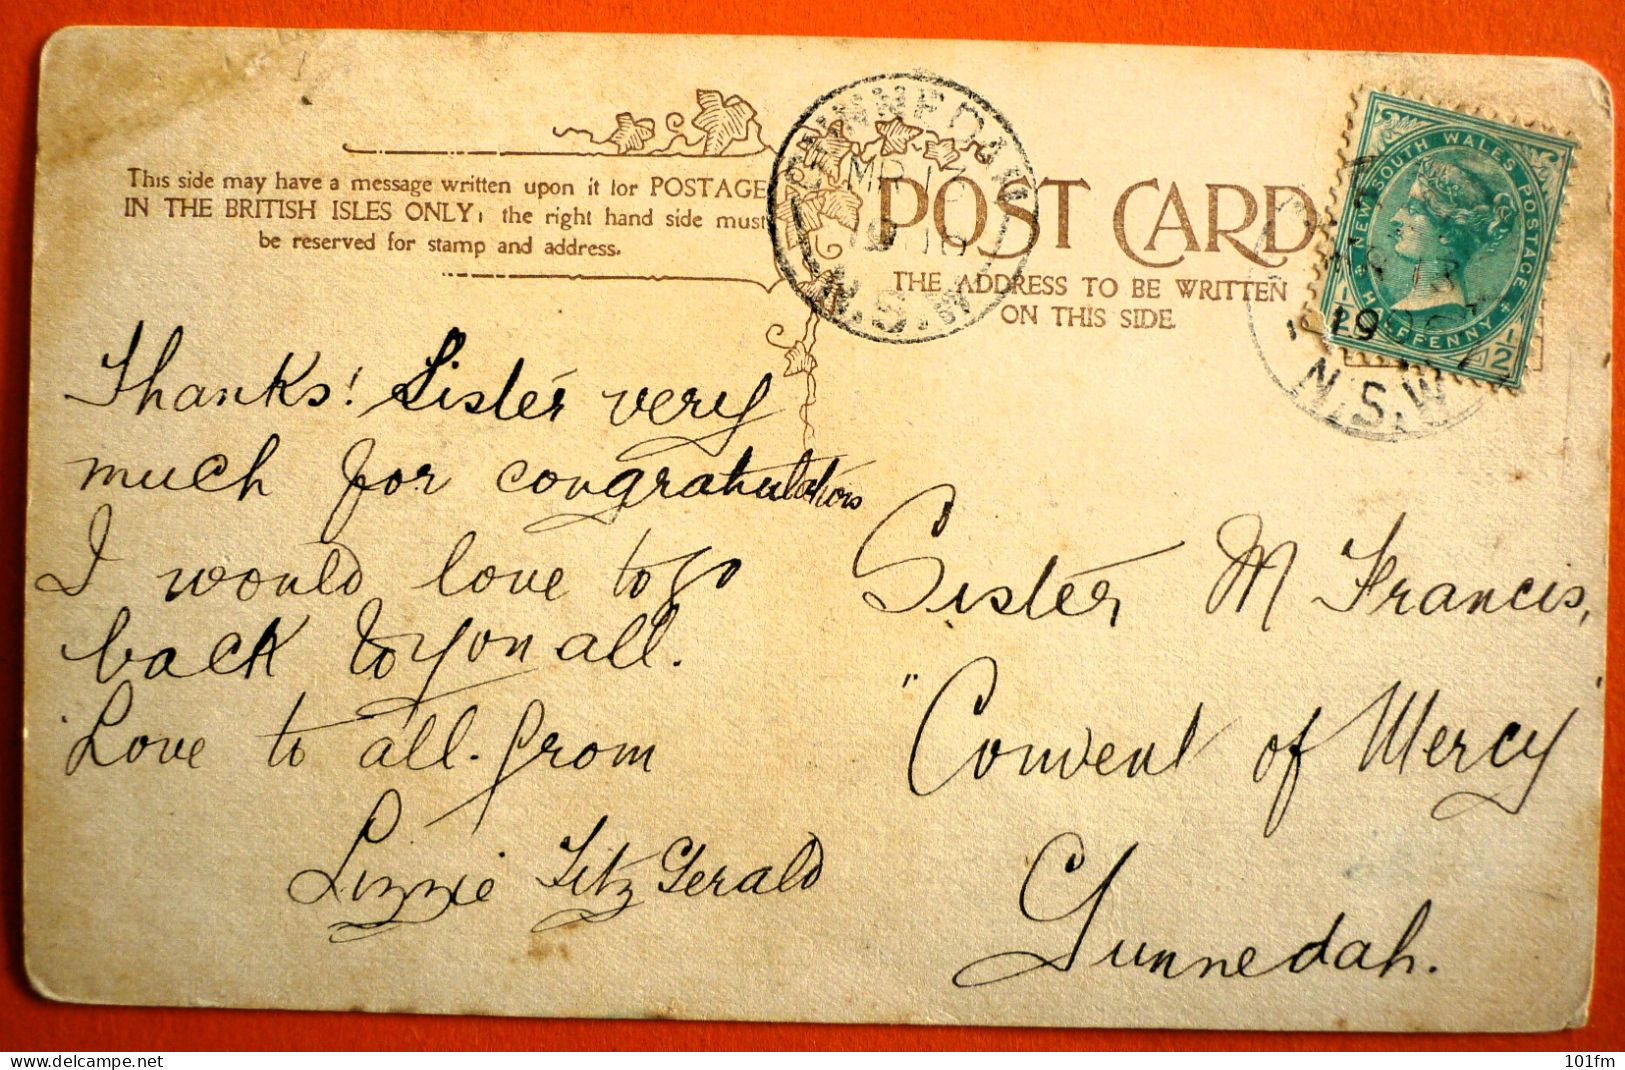 This side may have a message written upon it for POSTAGE
IN THE BRITISH ISLES ONLY; the right hand side must
be reserved for stamp and address.
POST CARD
THE ADDRESS TO BE WRITTEN
ON THIS SIDE.
GUNNEDAH
N.S.W
NEW SOUTH WALES POSTAGE
HALFPENNY
1/2 1/2
13
N.S.W
Thanks! Sister very
much for congratulations
I would love to go
back to you all.
Love to all. from
Lizzie FitzGerald
Sister M Francis,
"Convent of Mercy"
Gunnedah.
101fm